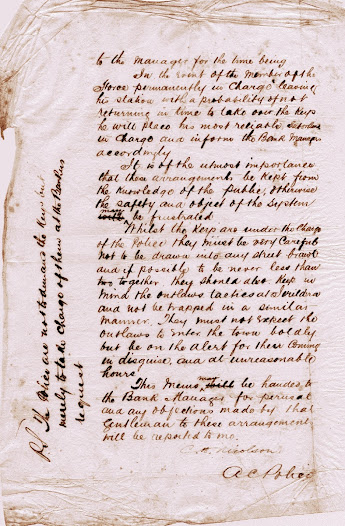 to the Manager for the time being
In the event of the Member of the
Force permanently in charge leaving
his station with a probability of not
returning in time to take over the keys
he will place his most reliable
in charge and inform the Bank Manager
accordingly
It is of the utmost importance
that these arrangements be kept from
the knowledge of the public, otherwise
the safety and object of the system
may be frustrated
Whilst the keys are under the charge
of the Police they must be very careful
not to be drawn into any street brawl
and if possible to be never less than
two together, they should also keep in
mind the outlaws tactics at Jerilderie
and not be trapped in a similar
manner. They must not expect the
outlaws to enter the town boldly
but be on the alert for these coming
in disguise, and at unreasonable
hours
This Memo may be handed to
the Bank Manager for perusal
and any objections made by that
Gentleman to these arrangements
will be reported to me.
C. H. Nicolson
A C Police
The Police are not to demand the keys but
merely to take charge of them at the Bankers
request